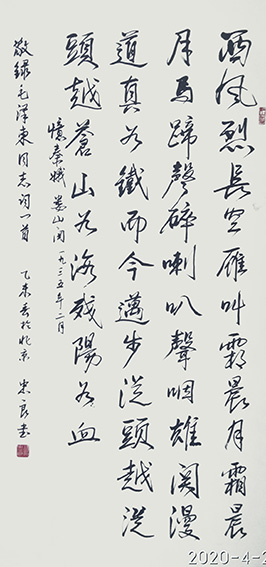 西風烈長空雁叫霜晨月霜晨
月馬蹄聲碎喇叭聲咽雄関漫
道真如鐵而今邁步従頭越従
頭越蒼山如海殘陽如血
憶秦娥 婁山関 一九三五年二月
敬録毛澤東同志詞一首 乙未春於北京 良書
2020-4-2